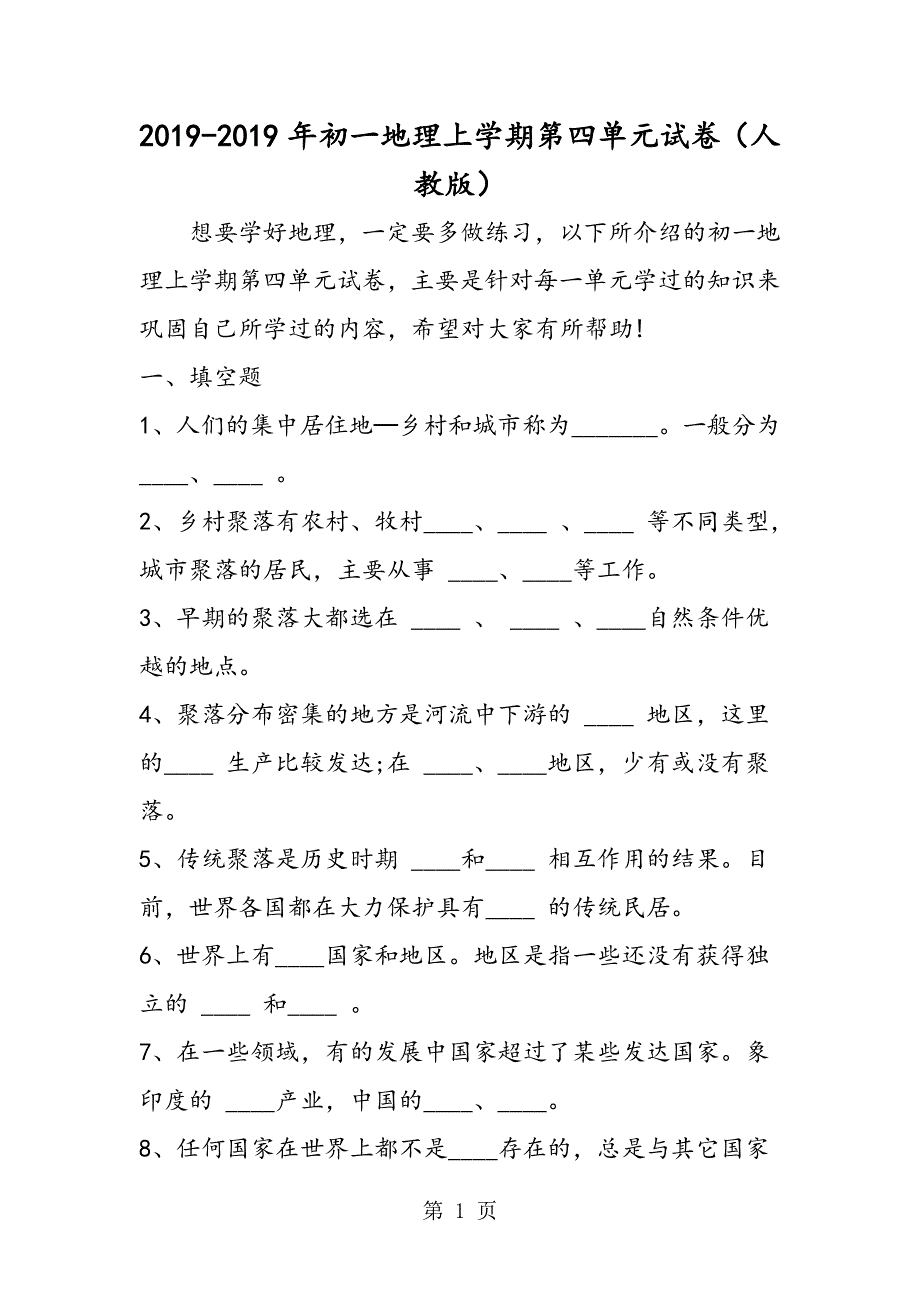 2019-2019年初一地理上学期第四单元试卷（人
教版）
想要学好地理，一定要多做练习，以下所介绍的初一地
理上学期第四单元试卷，主要是针对每一单元学过的知识来
巩固自己所学过的内容，希望对大家有所帮助!
一、填空题
1、人们的集中居住地—乡村和城市称为_______。一般分为
____、____ 。
2、乡村聚落有农村、牧村____、____ 、____ 等不同类型，
城市聚落的居民，主要从事 ____、____等工作。
3、早期的聚落大都选在 ____ 、 ____ 、____自然条件优
越的地点。
4、聚落分布密集的地方是河流中下游的 ____ 地区，这里
的____ 生产比较发达;在 ____、____地区，少有或没有聚
落。
5、传统聚落是历史时期 ____和____ 相互作用的结果。目
前，世界各国都在大力保护具有____ 的传统民居。
6、世界上有____国家和地区。地区是指一些还没有获得独
立的 ____ 和____ 。
7、在一些领域，有的发展中国家超过了某些发达国家。象
印度的 ____产业，中国的____、____。
8、任何国家在世界上都不是____存在的，总是与其它国家
第 1 页